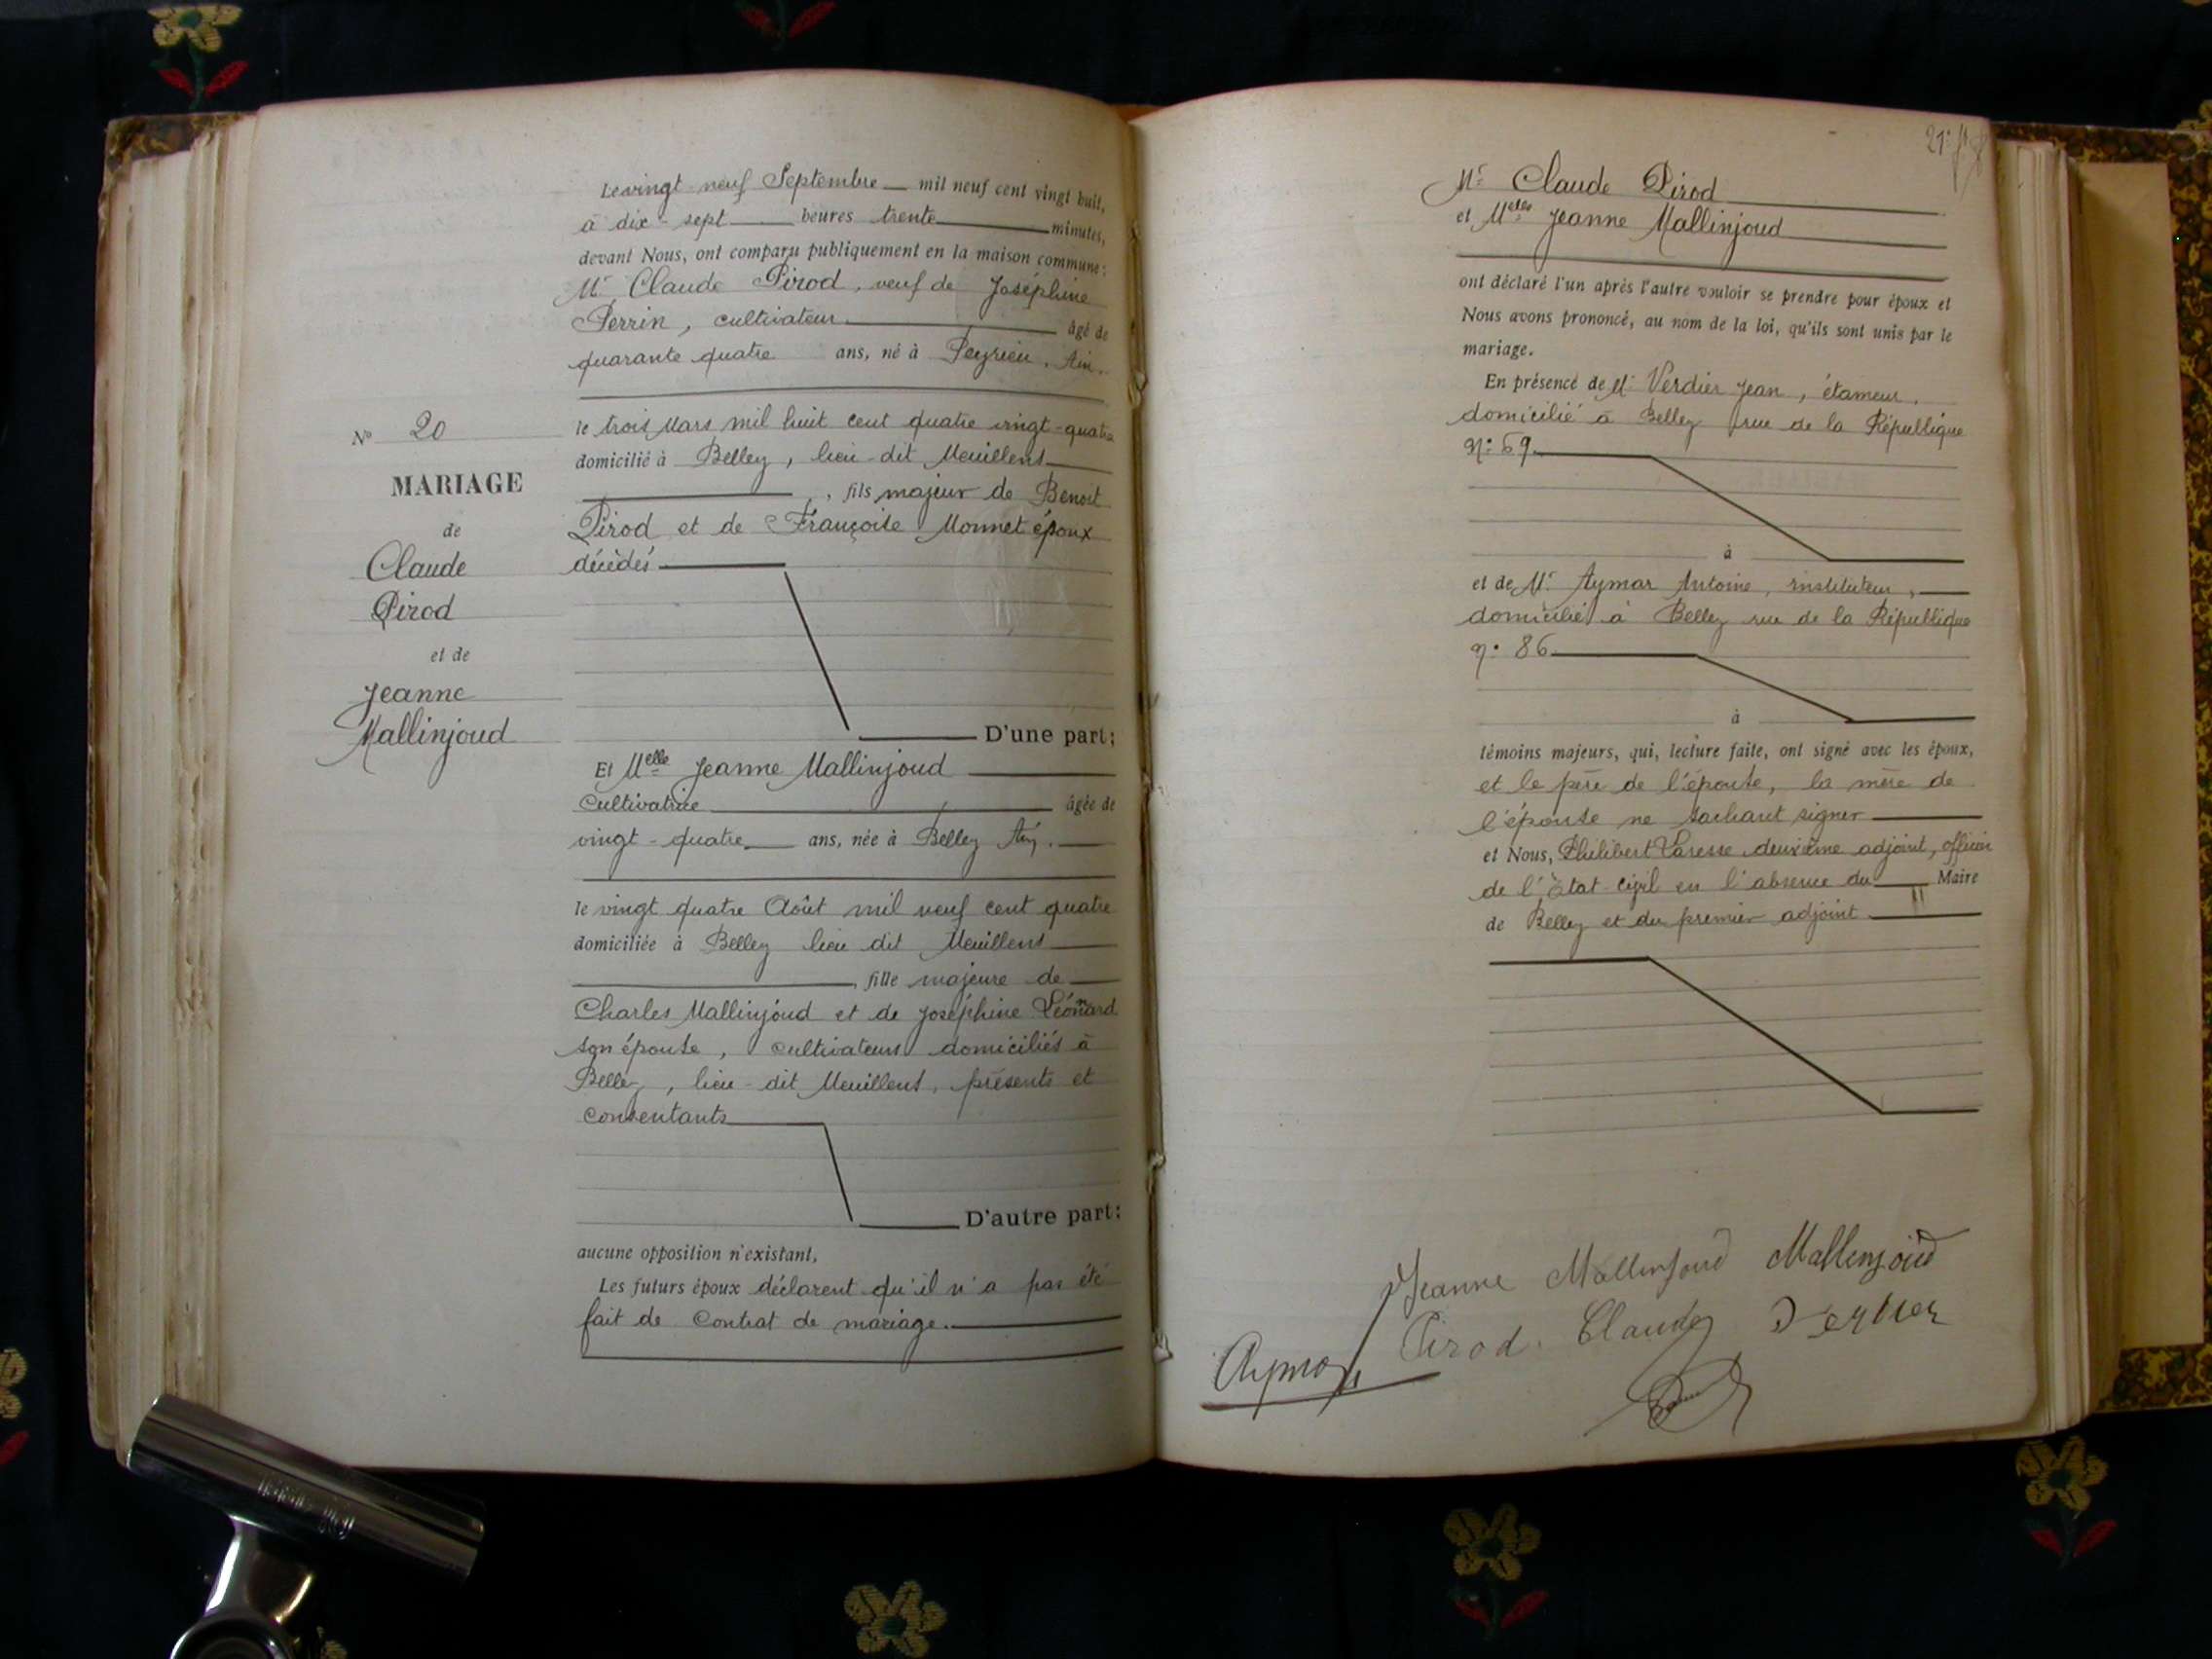 Le vingt-neuf Septembre mil neuf cent vingt huit,
à dix-sept heures trente minutes,
devant Nous, ont comparu publiquement en la maison commune:
Mr Claude Pirod, veuf de Joséphine
Perrin, cultivateur âgé de
quarante quatre ans, né à Peyrieu, Ain.
No 20
le trois Mars mil huit cent quatre vingt-quatre
domicilié à Belley, lieu-dit Meuillens
MARIAGE
, fils majeur de Benoit
de
Pirod et de Françoise Monnet époux
Claude
décédés
Pirod
et de
Jeanne
Mallinjoud
D'une part;
Et Melle Jeanne Mallinjoud
Cultivatrice âgée de
vingt-quatre ans, née à Belley Ain.
le vingt quatre Août mil neuf cent quatre
domiciliée à Belley lieu dit Meuillens
, fille majeure de
Charles Mallinjoud et de Joséphine Léonard
son épouse, cultivateurs domiciliés à
Belley, lieu-dit Meuillens, présents et
consentants
D'autre part:
aucune opposition n'existant,
Les futurs époux déclarent qu'il n'a pas été
fait de contrat de mariage.
21e
Mr Claude Pirod
et Melle Jeanne Mallinjoud
ont déclaré l'un après l'autre vouloir se prendre pour époux et
Nous avons prononcé, au nom de la loi, qu'ils sont unis par le
mariage.
En présence de Mr Verdier Jean, étameur,
domicilié à Belley rue de la République
No 69
à
et de Mr Aymar Antoine, instituteur,
domicilié à Belley rue de la République
no 86
à
témoins majeurs, qui, lecture faite, ont signé avec les époux,
et le père de l'épouse, la mère de
l'épouse ne sachant signer
et Nous, Philibert Varesse deuxième adjoint, officier
de l'État-civil en l'absence du Maire
de Belley et du premier adjoint
Jeanne Mallinjoud Mallinjoud
Pirod. Claude Verdier
Aymar